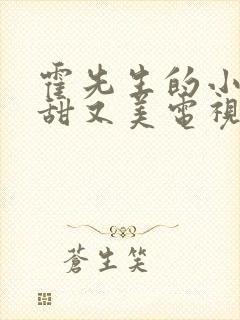 霍先生的小
甜又美電視
蒼生笑